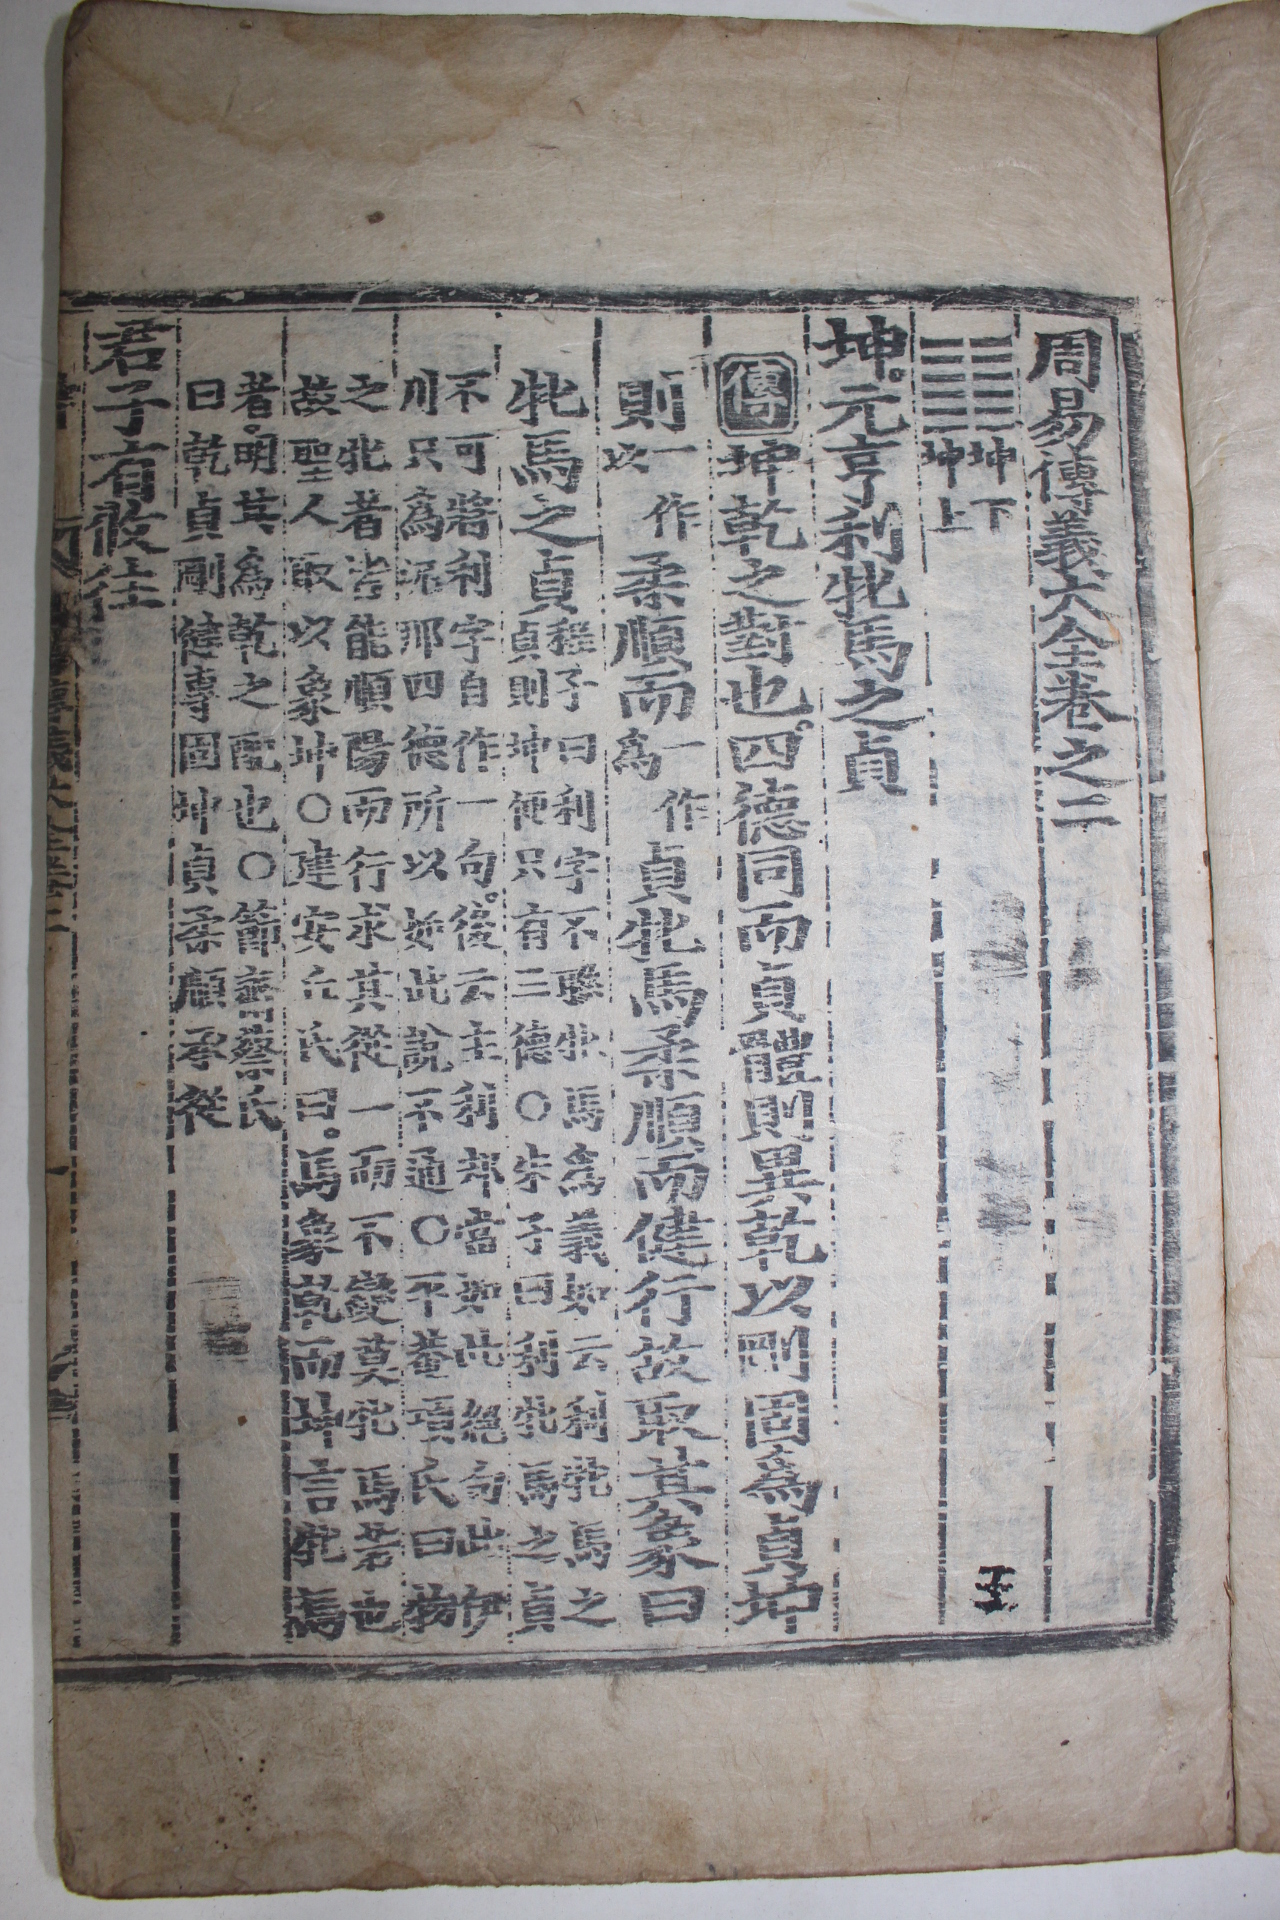 周易傳義大全卷之二
坤下
坤上
坤。元亨利牝馬之貞
傳坤乾之對也。四德同而貞體則異乾以剛固為貞坤
則一作以柔順而一作為貞牝馬柔順而健行故取其象曰
牝馬之貞程子曰利字不聯牝馬為義如云利牝馬之
貞則坤便只有三德〇朱子曰利牝馬之貞
不可將利字自作一句。後云主利却當如此絕句此伊
川只為泥那四德所以如此說不通〇平菴項氏曰物
之牝者皆能順陽而行求其從一而不變莫牝馬若也
故聖人取以象坤〇建安丘氏曰。馬象乾而坤言牝馬
者。明其為乾之配也〇節齋蔡氏
曰乾貞剛健專固坤貞柔順承從
君子有攸往